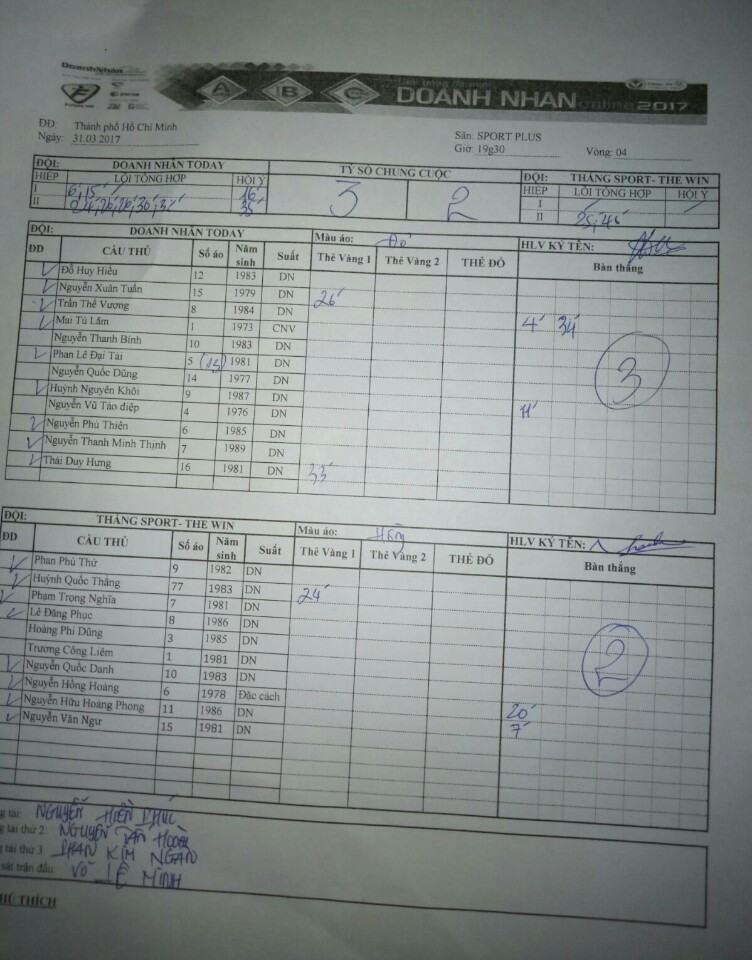 DoanhNhân
A B C
DOANH NHÂN online 2017
ĐĐ: Thành phố Hồ Chí Minh
Ngày: 31.03.2017
Sân: SPORT PLUS
Giờ: 19g30 Vòng: 04
ĐỘI: DOANH NHÂN TODAY TỶ SỐ CHUNG CUỘC ĐỘI: THẮNG SPORT- THE WIN
HIỆP LỖI TỔNG HỢP HỘI Ý 3 2 HIỆP LỖI TỔNG HỢP HỘI Ý
I 6,15' 16' I
II 35' II 25,46'
ĐỘI: DOANH NHÂN TODAY Màu áo: Đỏ HLV KÝ TÊN:
ĐD CẦU THỦ Số áo Năm sinh Suất Thẻ Vàng 1 Thẻ Vàng 2 THẺ ĐỎ Bàn thắng
Đỗ Huy Hiếu 12 1983 DN
Nguyễn Xuân Tuấn 15 1979 DN 26'
Trần Thế Vượng 8 1984 DN 4' 34'
Mai Tú Lâm 1 1973 CNV
Nguyễn Thanh Bình 10 1983 DN
Phan Lê Đại Tài 5 (13) 1981 DN
Nguyễn Quốc Dũng 14 1977 DN
Huỳnh Nguyên Khôi 9 1987 DN 11'
Nguyễn Vũ Tảo điệp 4 1976 DN
Nguyễn Phú Thiên 6 1985 DN
Nguyễn Thanh Minh Thịnh 7 1989 DN
Thái Duy Hưng 16 1981 DN 33'
3
ĐỘI: THẮNG SPORT- THE WIN Màu áo: Hồng HLV KÝ TÊN:
ĐD CẦU THỦ Số áo Năm sinh Suất Thẻ Vàng 1 Thẻ Vàng 2 THẺ ĐỎ Bàn thắng
Phan Phú Thứ 9 1982 DN
Huỳnh Quốc Thắng 77 1983 DN 24'
Phạm Trọng Nghĩa 7 1981 DN
Lê Đăng Phục 8 1986 DN
Hoàng Phi Dũng 3 1985 DN
Trương Công Liêm 1 1981 DN
Nguyễn Quốc Danh 10 1983 DN
Nguyễn Hồng Hoàng 6 1978 Đặc cách
Nguyễn Hữu Hoàng Phong 11 1986 DN 20'
Nguyễn Văn Ngư 15 1981 DN 7'
2
g tài: NGUYỄN HIỀN PHÚC
g tài thứ 2: NGUYỄN TẤN
g tài thứ 3: PHAN KIM NGÂN
sát trận đấu: VÕ LÊ MINH
HÚ THÍCH